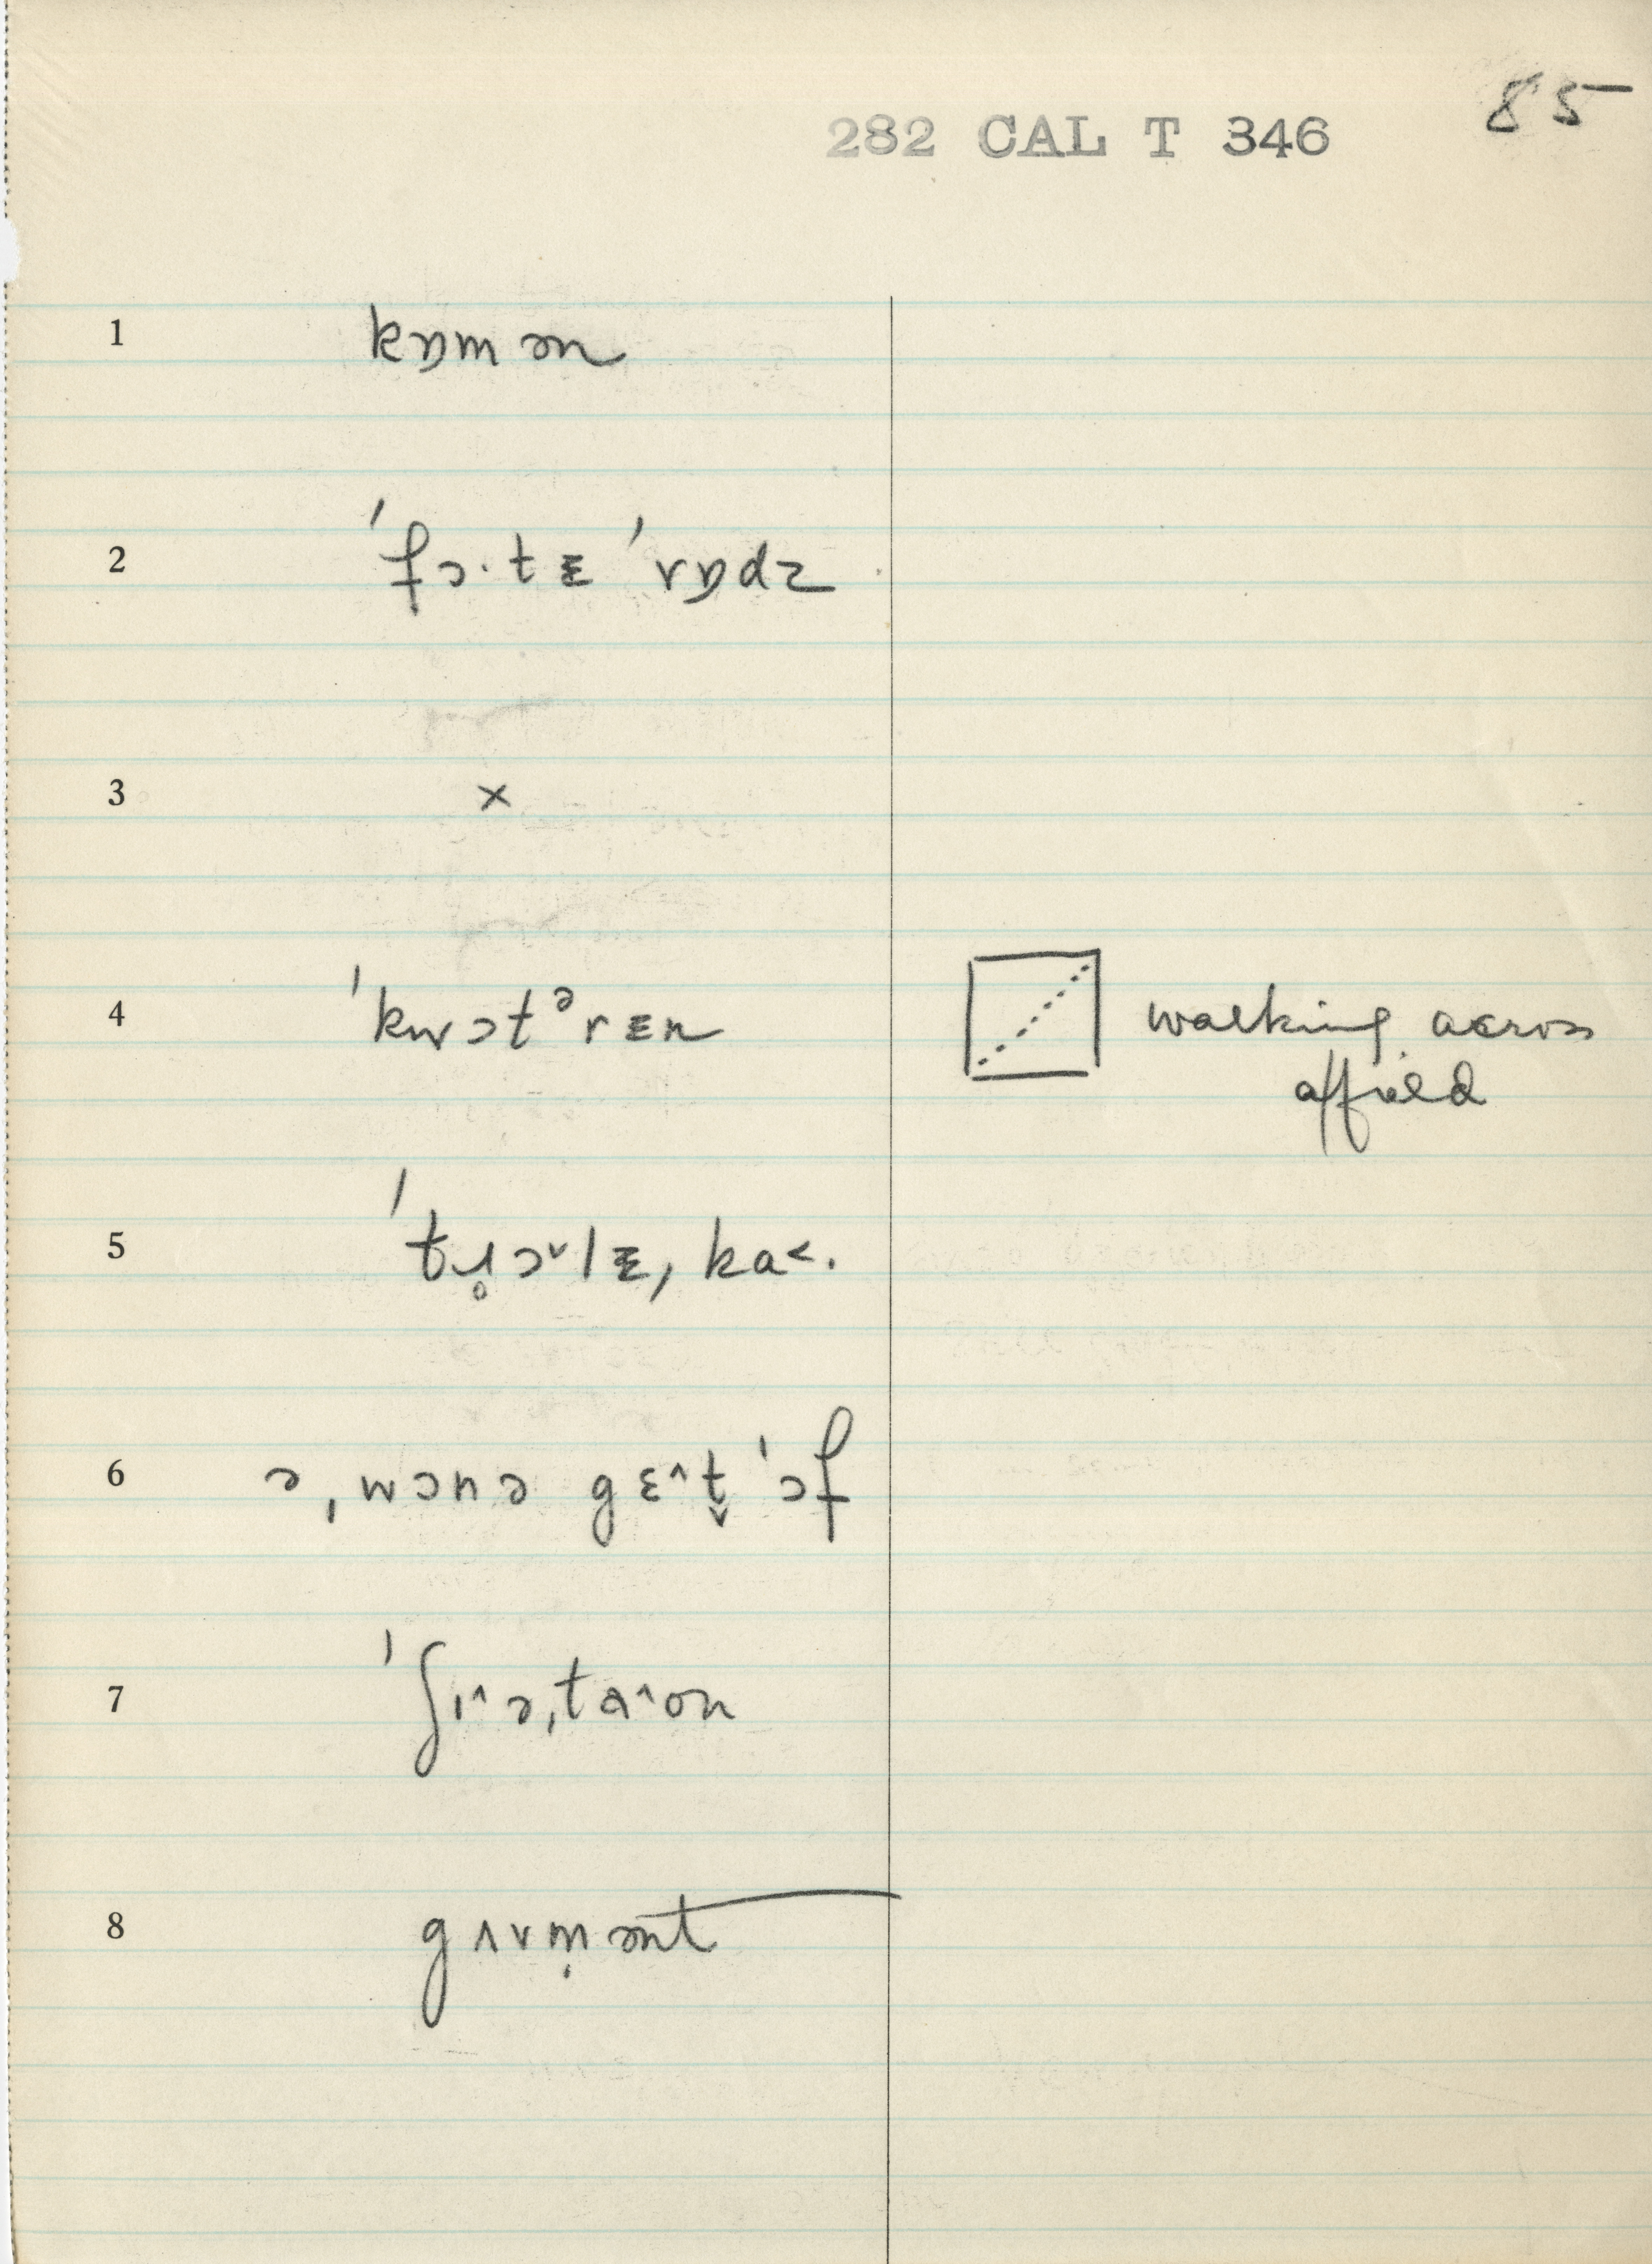 85
282 CAL T 346
1 kɒmən
2 ˈfɔ·tɪ ˈrɒdz
3 ×
4 ˈkwɔtᵊrɪn walking across
a field
5 ˈtr̥ɔ˅lɪˌka˂.
6 əˌwɔnə gɛ˄t̬ ˈɔf
7 ˈʃɪ˄əˌta˄on
8 gʌvm̩ənt